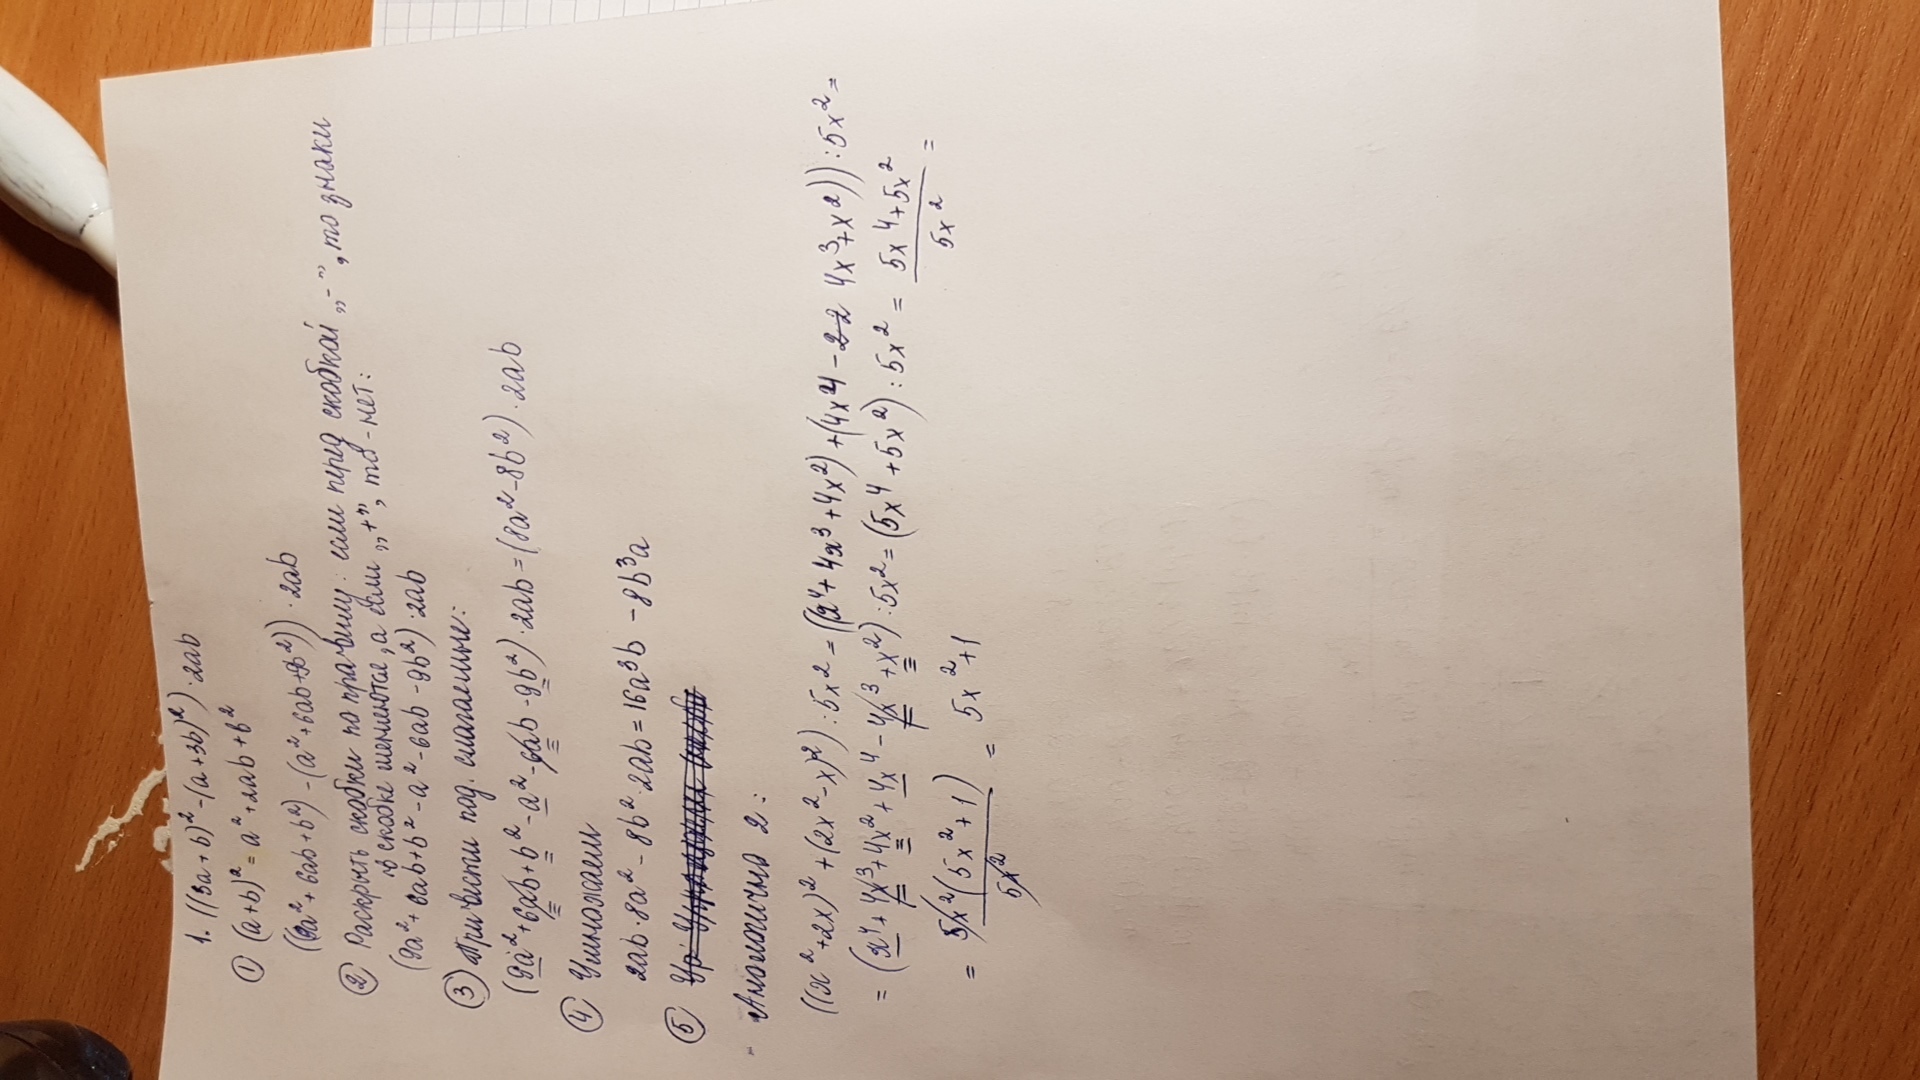 1. ((3a+b)²-(a+3b)²)·2ab
① (a+b)²=a²+2ab+b²
((9a²+6ab+b²)-(a²+6ab+9b²))·2ab
② Раскрыть скобки по правилу: если перед скобкой „-”, то знаки
в скобке меняются, а если „+”, то - нет:
(9a²+6ab+b²-a²-6ab-9b²)·2ab
③ Привести под. слагаемые:
(9a²+6ab+b²-a²-6ab-9b²)·2ab=(8a²-8b²)·2ab
④ Умножаем
2ab·8a²-8b²·2ab=16a³b-8b³a
⑤
Аналогично 2:
((x²+2x)²+(2x²-x)²):5x²=((x⁴+4x³+4x²)+(4x⁴-22 4x³+x²)):5x²=
=(x⁴+4x³+4x²+4x⁴-4x³+x²):5x²=(5x⁴+5x²):5x²= 5x⁴+5x²/5x² =
= 5x²(5x²+1)/5x² = 5x²+1